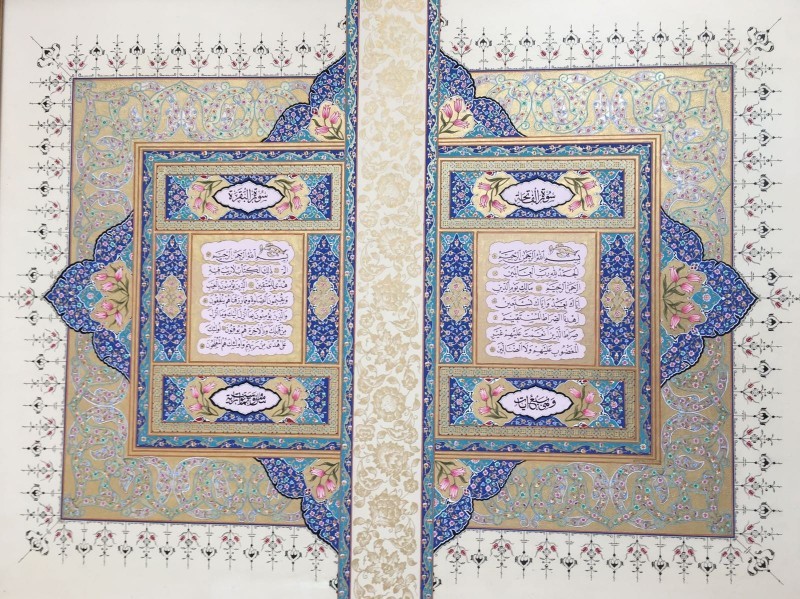 سورة الفاتحة
بسم الله الرحمن الرحيم
الحمد لله رب العالمين
الرحمن الرحيم مالك يوم الدين
إياك نعبد وإياك نستعين
اهدنا الصراط المستقيم
صراط الذين أنعمت عليهم غير
المغضوب عليهم ولا الضالين
وهي سبع آيات
سورة البقرة
بسم الله الرحمن الرحيم
الم ذلك الكتاب لا ريب فيه
هدى للمتقين الذين يؤمنون بالغيب
ويقيمون الصلوة ومما رزقناهم ينفقون
والذين يؤمنون بما أنزل إليك وما أنزل
من قبلك وبالآخرة هم يوقنون أولئك
على هدى من ربهم وأولئك هم المفلحون